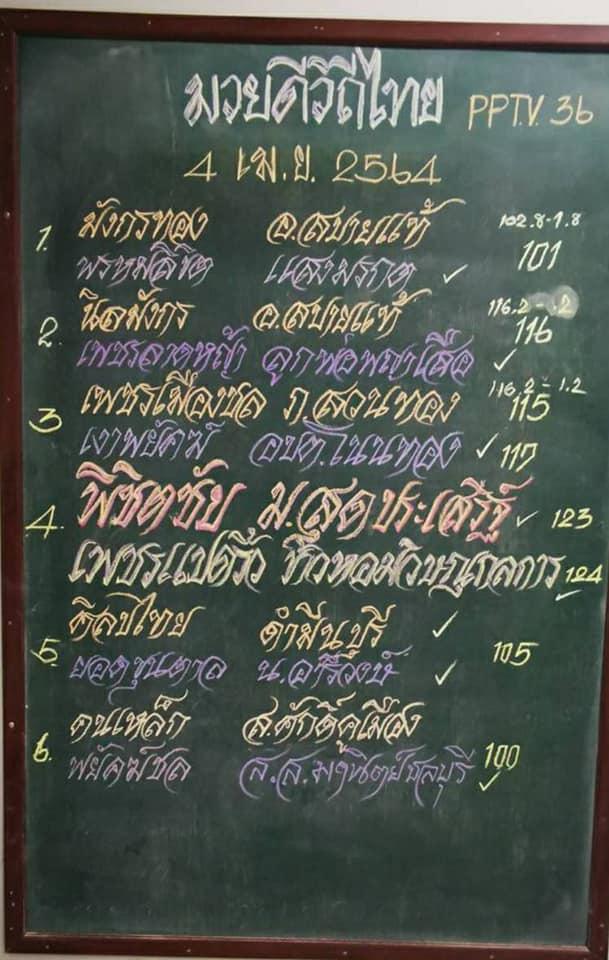 มวยดีวิถีไทย PPTV. 36
4 เม.ย. 2564
1. มังกรทอง อ.สบายแท้ 102.8-1.8
พรหมลิขิต แสงมรกต ✓ 101
2. นิลมังกร อ.สบายแท้ 116.2 - .2
116
เพชรลาดหญ้า ลูกพ่อพญาเสือ ✓
116.2 - 1.2
3 เพชรเมืองชล ภ.สวนทอง 115
เงาพยัคฆ์ อบต.โนนทอง ✓ 117
4. พิชิตชัย ม.สดประเสริฐ ✓ 123
เพชรแปดริ้ว 124 ✓
5. ศิลป์ไทย ดำมีนบุรี ✓
105
ยอดขุนตาล น.อารีวงษ์ ✓
6. คนเหล็ก ส.ศักดิ์คูเมือง
100
พยัคฆ์ชล ✓